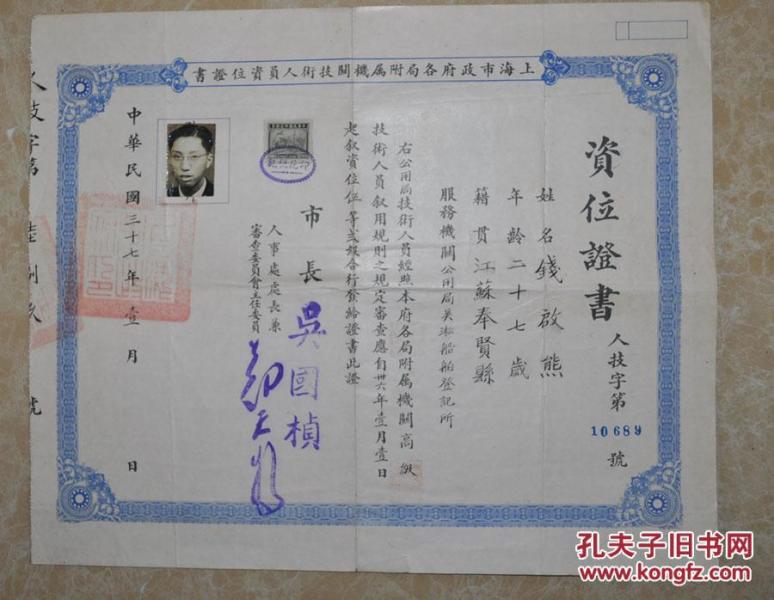 上海市政府各局附属機關技術人員資位證書
資位證書
人技字第
10689
號
姓名錢啟熊
年齡二十七歲
籍貫江蘇奉賢縣
服務機關公用局吴淞船舶登記所
右公用局技術人員經照本府各局附属機關高級
技術人員敘用規則之規定審查應自卅六年壹月壹日
起敘資位伍等弍級合行發給證書此證
市長
吳國楨
人事處處長兼
審查委員會主任委員
中華民國三十七年壹月 日
人技字第
號
孔夫子旧书网
www.kongfz.com